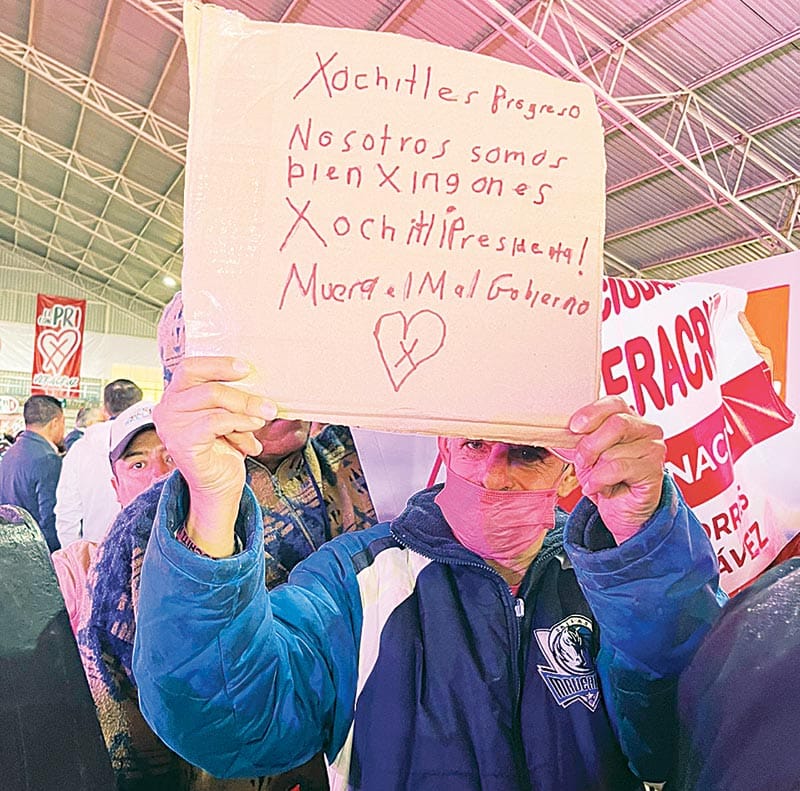 Xochitl es Progreso
Nosotros somos
bien Xingones
Xochitl ¡Presidenta!
Muera el Mal Gobierno
X
PRI
CIUDA
ERACR
NAC
MAVERICKS